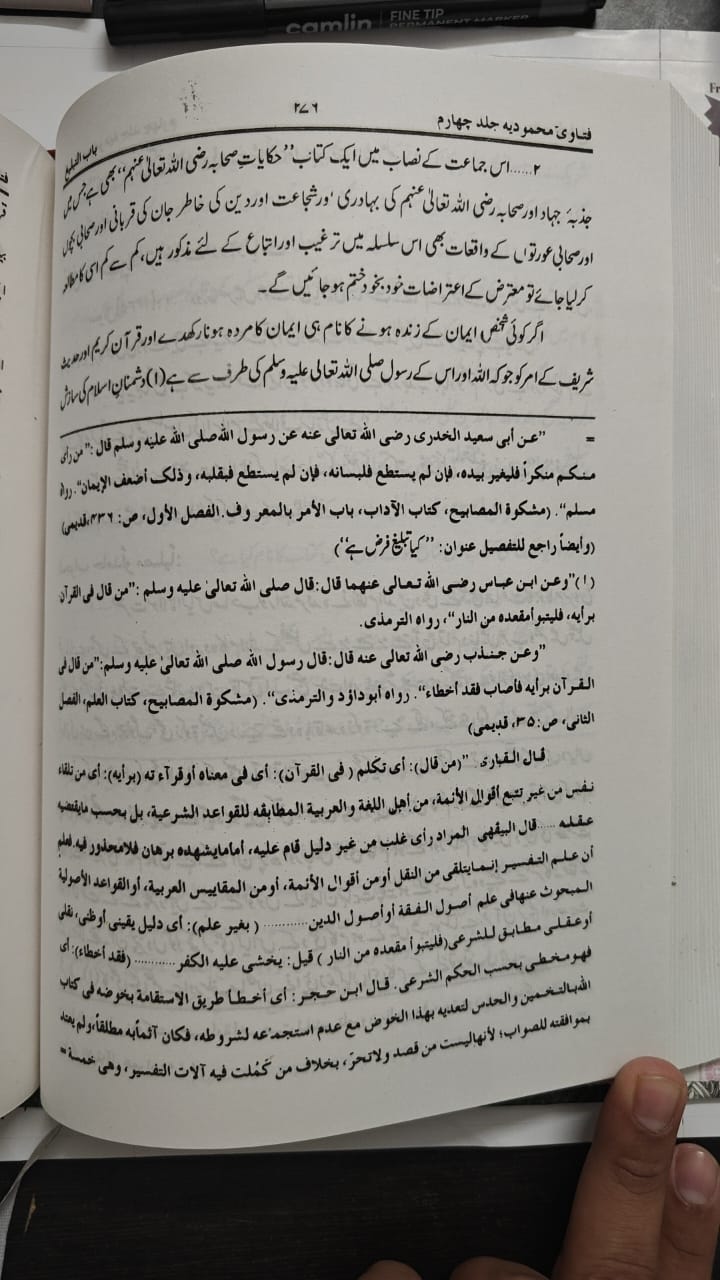 camlin FINE TIP
PERMANENT MARKER
فتاویٰ محمودیہ جلد چہارم ۲۷۶ باب التبلیغ
۲......اس جماعت کے نصاب میں ایک کتاب ’’حکایاتِ صحابہ رضی اللہ تعالیٰ عنہم‘‘ بھی ہے جس میں
جذبۂ جہاد اور صحابہ رضی اللہ تعالیٰ عنہم کی بہادری ورشجاعت اور دین کی خاطر جان کی قربانی اور صحابی بچوں
اور صحابی عورتوں کے واقعات بھی اس سلسلہ میں ترغیب اور اتباع کے لئے مذکور ہیں، کم سے کم اسی کا مطالعہ
کرلیا جائے تو معترض کے اعتراضات خود بخود ختم ہوجائیں گے۔
اگر کوئی شخص ایمان کے زندہ ہونے کا نام ہی ایمان کا مردہ ہونا رکھدے اور قرآن کریم اور حدیث
شریف کے امر کو جو کہ اللہ اور اس کے رسول صلی اللہ تعالیٰ علیہ وسلم کی طرف سے ہے (۱) دشمنانِ اسلام کی سازش
= ’’عن أبی سعید الخدری رضی الله تعالی عنه عن رسول الله صلی الله علیه وسلم قال: ’’من رأی
منکم منکراً فلیغیر بیده، فإن لم یستطع فلبسانه، فإن لم یستطع فبقلبه، وذلک أضعف الإیمان‘‘. رواه
مسلم‘‘. (مشکوة المصابیح، کتاب الآداب، باب الأمر بالمعروف. الفصل الأول، ص: ۴۳۶، قدیمی)
(وأیضاً راجع للتفصیل عنوان: ’’کیا تبلیغ فرض ہے‘‘)
(۱) ’’وعن ابن عباس رضی الله تعالی عنهما قال: قال صلی الله تعالیٰ علیه وسلم: ’’من قال فی القرآن
برأیه، فلیتبوأ مقعده من النار‘‘، رواه الترمذی.
’’وعن جندب رضی الله تعالی عنه قال: قال رسول الله صلی الله تعالیٰ علیه وسلم: ’’من قال فی
القرآن برأیه فأصاب فقد أخطاء‘‘. رواه أبوداؤد والترمذی‘‘. (مشکوة المصابیح، کتاب العلم، الفصل
الثانی، ص: ۳۵، قدیمی)
قال القاری ’’(من قال): أی تکلم (فی القرآن): أی فی معناه أو قرآء ته (برأیه): أی من تلقاء
نفس من غیر تتبع أقوال الأئمة، من أهل اللغة والعربیة المطابقه للقواعد الشرعیة، بل بحسب مایقتضیه
عقله ..... قال البیهقی المراد رأی غلب من غیر دلیل قام علیه، أما مایشهده برهان فلا محذور فیه. فعلم
أن علم التفسیر إنما یتلقی من النقل أو من أقوال الأئمة، أو من المقاییس العربیة، أو القواعد الأصولیة
المبحوث عنها فی علم أصول الفقة أو أصول الدین............ (بغیر علم): أی دلیل یقینی أو ظنی، نقلی
أو عقلی مطابق للشرعی (فلیتبوأ مقعده من النار) قیل: یخشی علیه الکفر............ (فقد أخطاء): أی
فهو مخطی بحسب الحکم الشرعی. قال ابن حجر: أی أخطأ طریق الاستقامة بخوضه فی کتاب
الله بالتخمین والحدس لتعدیه بهذا الخوض مع عدم استجماعه لشروطه، فکان آثماً به مطلقاً، ولم یعتد
بموافقته للصواب؛ لأنها لیست من قصد ولا تحرّ، بخلاف من کَمُلت فیه آلات التفسیر، وهی خمسة =